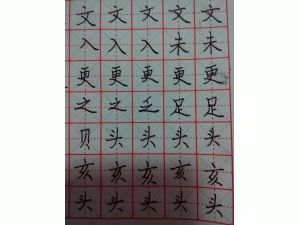 文文文文文
入入入未未
更更更更更
之之乏足足
贝头头头头
亥亥亥亥亥
头头头头头